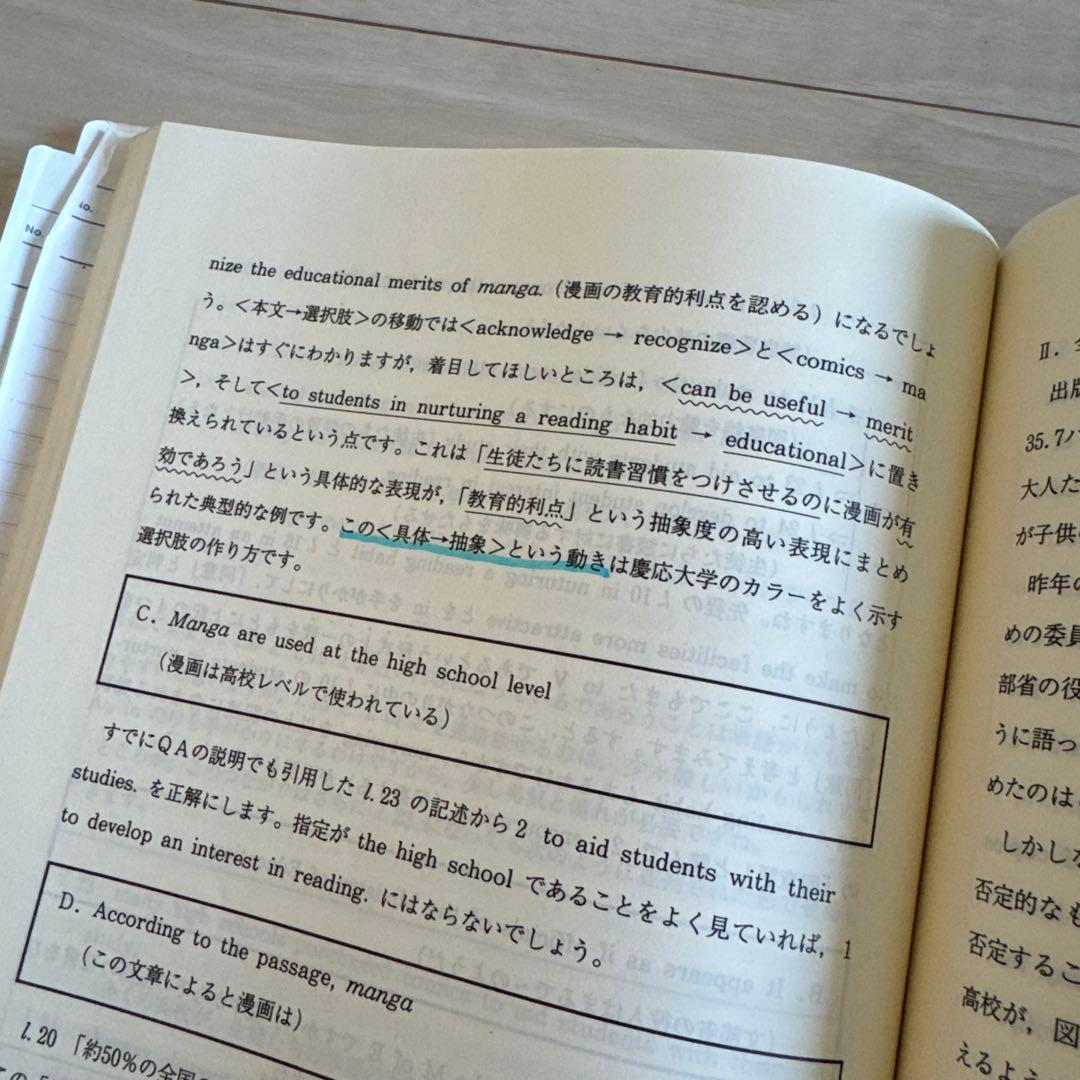 No.
No.
nize the educational merits of manga.(漫画の教育的利点を認める)になるでしょ
う。<本文→選択肢>の移動では<acknowledge → recognize>と<comics → ma
nga>はすぐにわかりますが，着目してほしいところは，<can be useful → merit
>，そして<to students in nurturing a reading habit → educational>に置き
換えられているという点です。これは「生徒たちに読書習慣をつけさせるのに漫画が有
効であろう」という具体的な表現が，「教育的利点」という抽象度の高い表現にまとめ
られた典型的な例です。この<具体→抽象>という動きは慶応大学のカラーをよく示す
選択肢の作り方です。
C. Manga are used at the high school level
(漫画は高校レベルで使われている)
すでにQAの説明でも引用した l.23 の記述から2 to aid students with their
studies. を正解にします。指定が the high school であることをよく見ていれば，1
to develop an interest in reading. にはならないでしょう。
D. According to the passage, manga
(この文章によると漫画は)
l.20 「約50%の全国の
Ⅱ.
出版
35.7パ
大人た
が子供
昨年の
めの委員
部省の役
うに語っ
めたのは
しかしな
否定的なも
否定するこ
高校が，図
えるよう